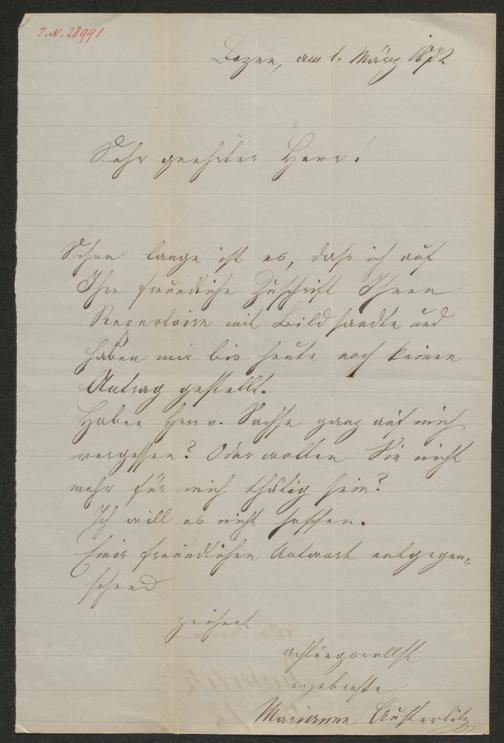 J.N. 28991
Bozen, am 1. März 1872
Sehr geehrter Herr!
Schon lange ist es, daß ich auf
Ihre freundliche Zuschrift Ihnen
Repertoire mit Bild sandte und
haben mir bis heute noch keinen
Antrag gestellt.
Haben Herr v. Sachse ganz auf mich
vergessen? Oder wollen Sie nicht
mehr für mich thätig sein?
Ich will es nicht hoffen.
Einer freundlichen Antwort entgegen-
sehend
zeichnet
achtungsvollst
ergebenste
Marianne Austerlitz